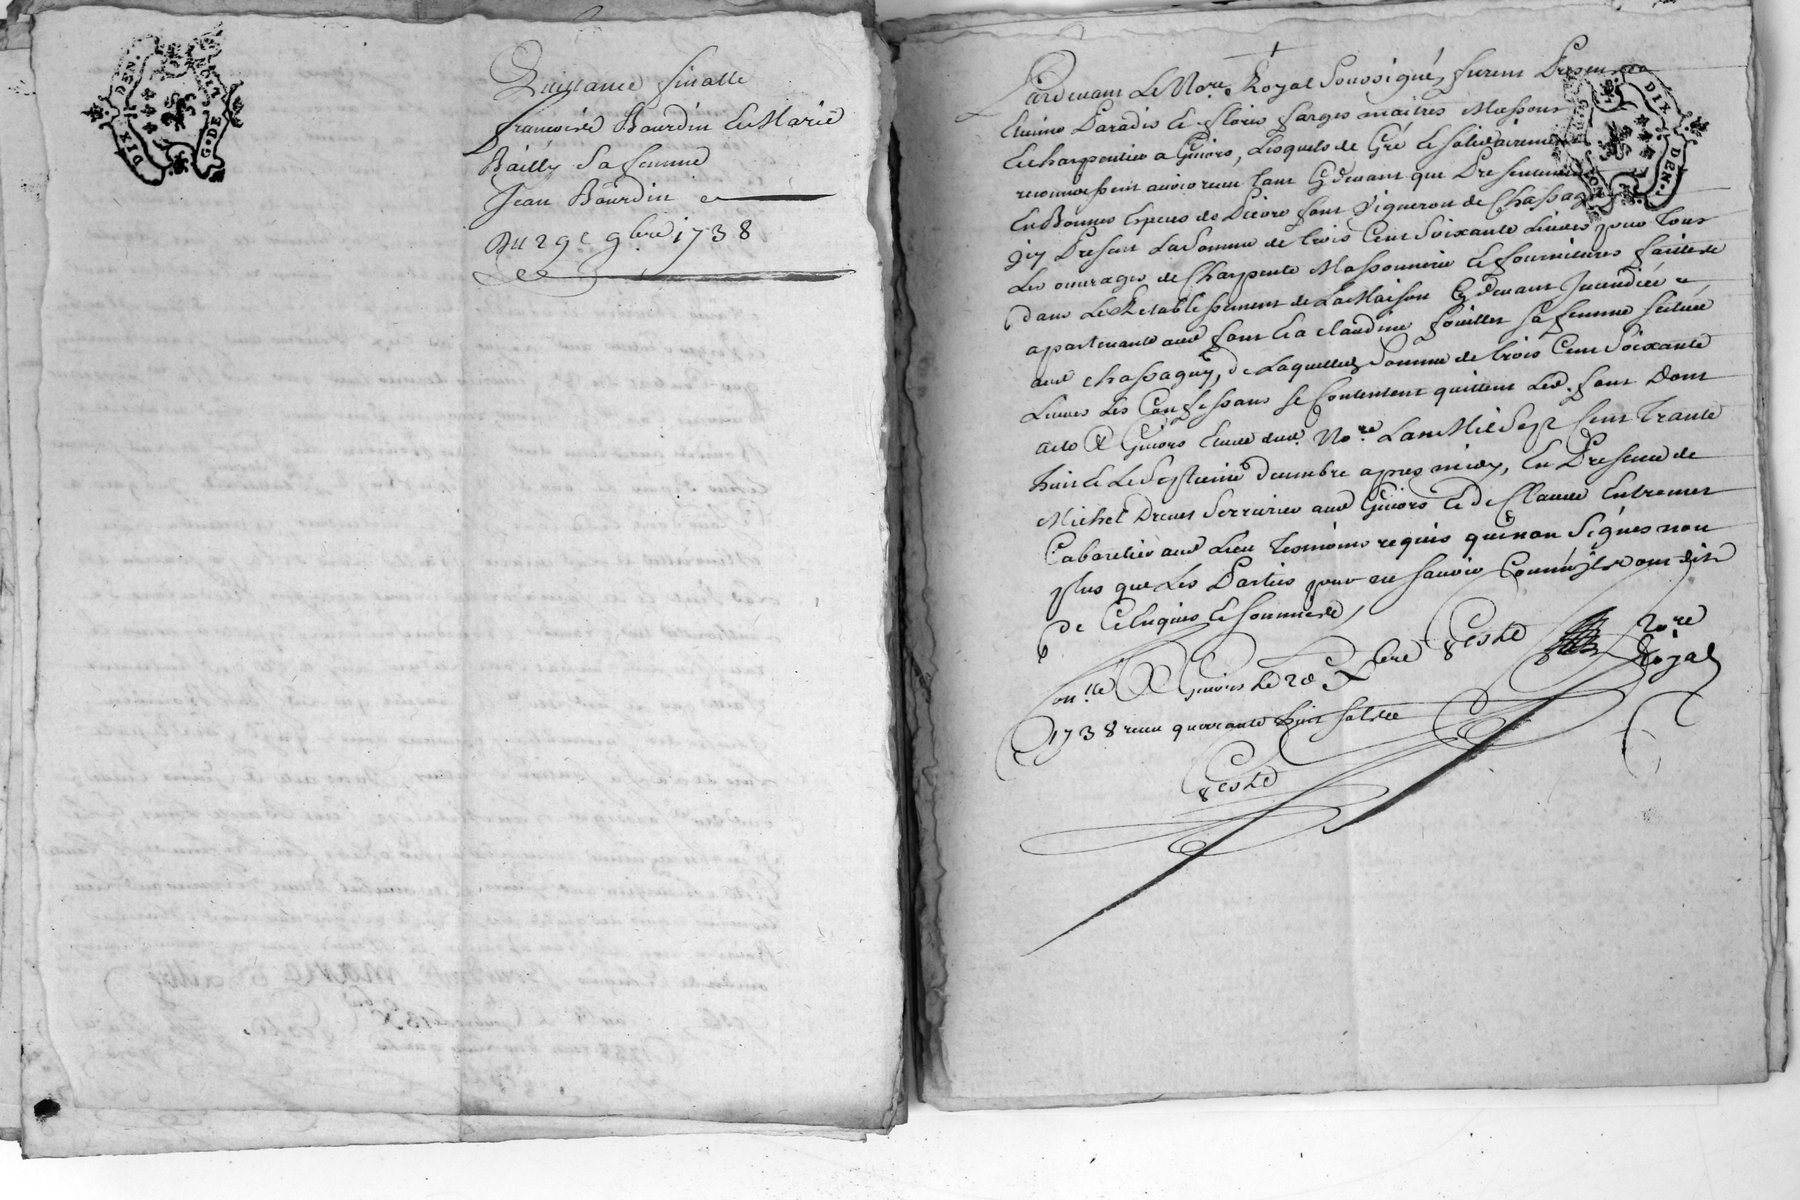 DIX DEN. G. DE LION
Quittance finalle
francoise Bourdin Et Marie
Bailly sa femme
Jean Bourdin
Du 29e 9bre 1738
Pardevant Le Nore Royal Soussigné, furent Presents
Etienne Paradis et floris farges maitres Massons
et charpentiers a Givors, Lesquels de Gré et solidairement
reconnoissent avoir receu tant Cy devant que Presentement
En Bonnes Especes de Pierre font Vigneron de Chassagny
Icy Present La Somme de trois Cent Soixante Livres pour tous
Les ouvrages de Charpente Massonnerie et fournitures faittes
dans Le Retablissement de La Maison Cy devant Incendiée
apartenante aud font Et a claudine fouillet sa femme scituée
aud chassagny, de Laquelle Somme de trois Cent Soixante
Livres Les Confessans se Contentent quittent Led. font Dont
acte A Givors Etude dud. Nore. Lan Mil Sept Cent Trante
huit et Le Septieme decembre apres midy, En Presence de
Michel Drevet Serrurier aud Givors Et de Claude Entremet
Cabaretier aud Lieu tesmoins requis qui non Signés non
plus que Les Parties pour ne scavoir Comme ils ont dit
De Ce Enquis et sommés
onlle A Givors Le 20e Xbre Nore
1738 receu quarante huit sols Royal